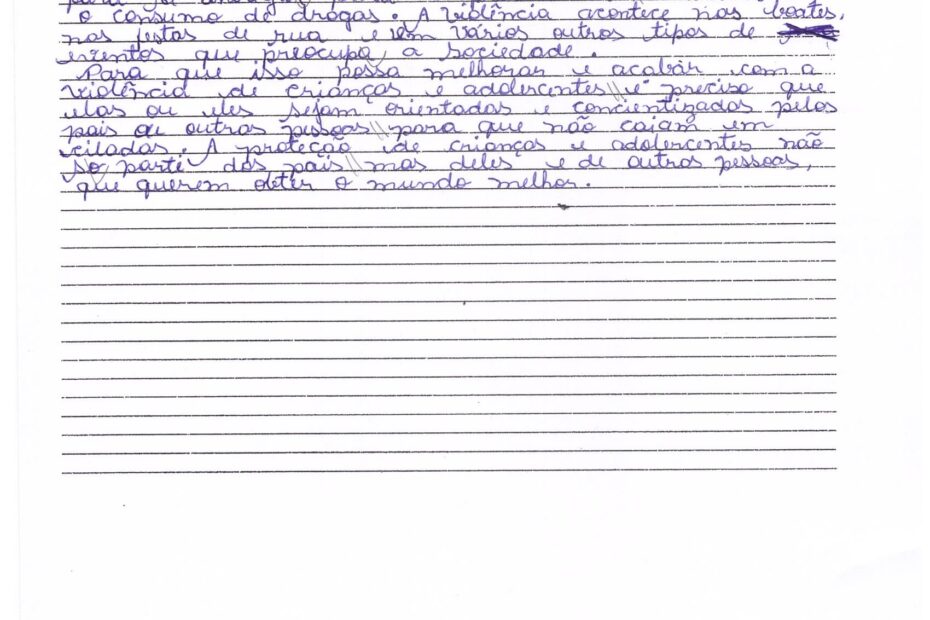 o consumo de drogas. A violência acontece nas boates,
nas festas de rua e em vários outros tipos de
eventos que preocupa, a sociedade.
Para que isso possa melhorar e acabar com a
violência de crianças e adolescentes, é preciso que
elas ou eles sejam orientadas e concientizados pelos
pais ou outras pessoas, para que não caiam em
ciladas. A proteção de crianças e adolescentes não
só parte dos pais, mas deles e de outras pessoas,
que querem obter o mundo melhor.